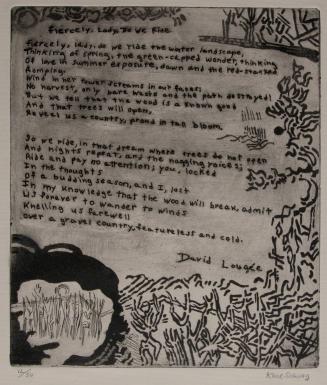 Fiercely, Lady, Do We Ride
Fiercely, lady, do we ride the water landscape,
Thinking of spring, the green-capped wonder, thinking
Of love in summer exposure, dawn and the red-stacked
Romping.
Wind in her fever screams in our faces;
No harvest, only bare wastes and the path destroyed!
But we tell that the wood is a known good
And that trees will open,
Reveal us a country, proud in tall bloom.
So we ride, in that dream where trees do not open
And nights repeat, and the nagging voices;
Ride and pay no attention; you, locked
In the thoughts
Of a budding season, and I, lost
In my knowledge that the wood will break, admit
Us forever to wander to winds
Knelling us farewell
Over a gravel country, featureless and cold.
David Lougée
/50
Karl Schrag